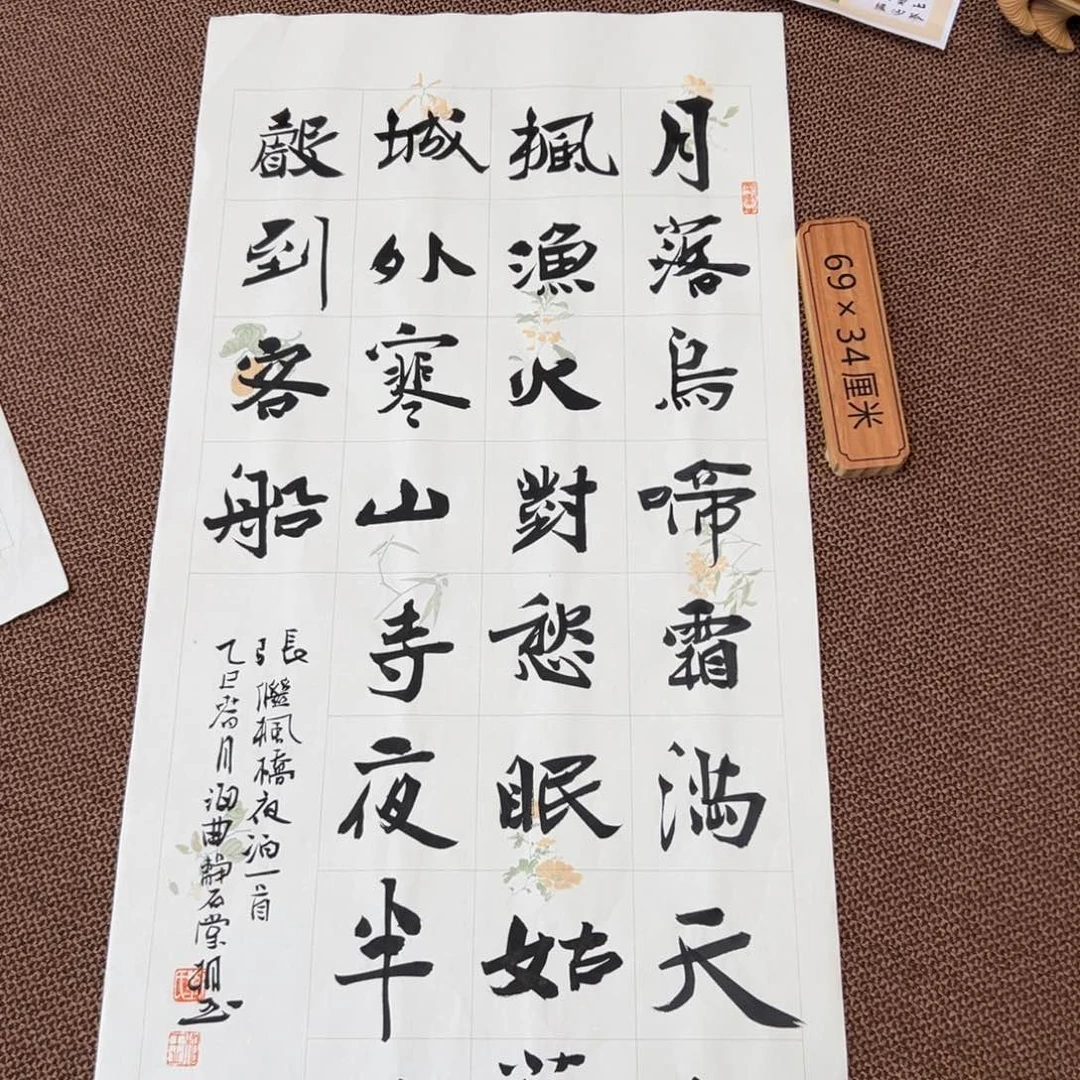 月落烏啼霜滿天
楓漁火對愁眠姑
城外寒山寺夜半
聲到客船
張繼楓橋夜泊一首
乙巳春月洄曲靜石堂
69×34厘米